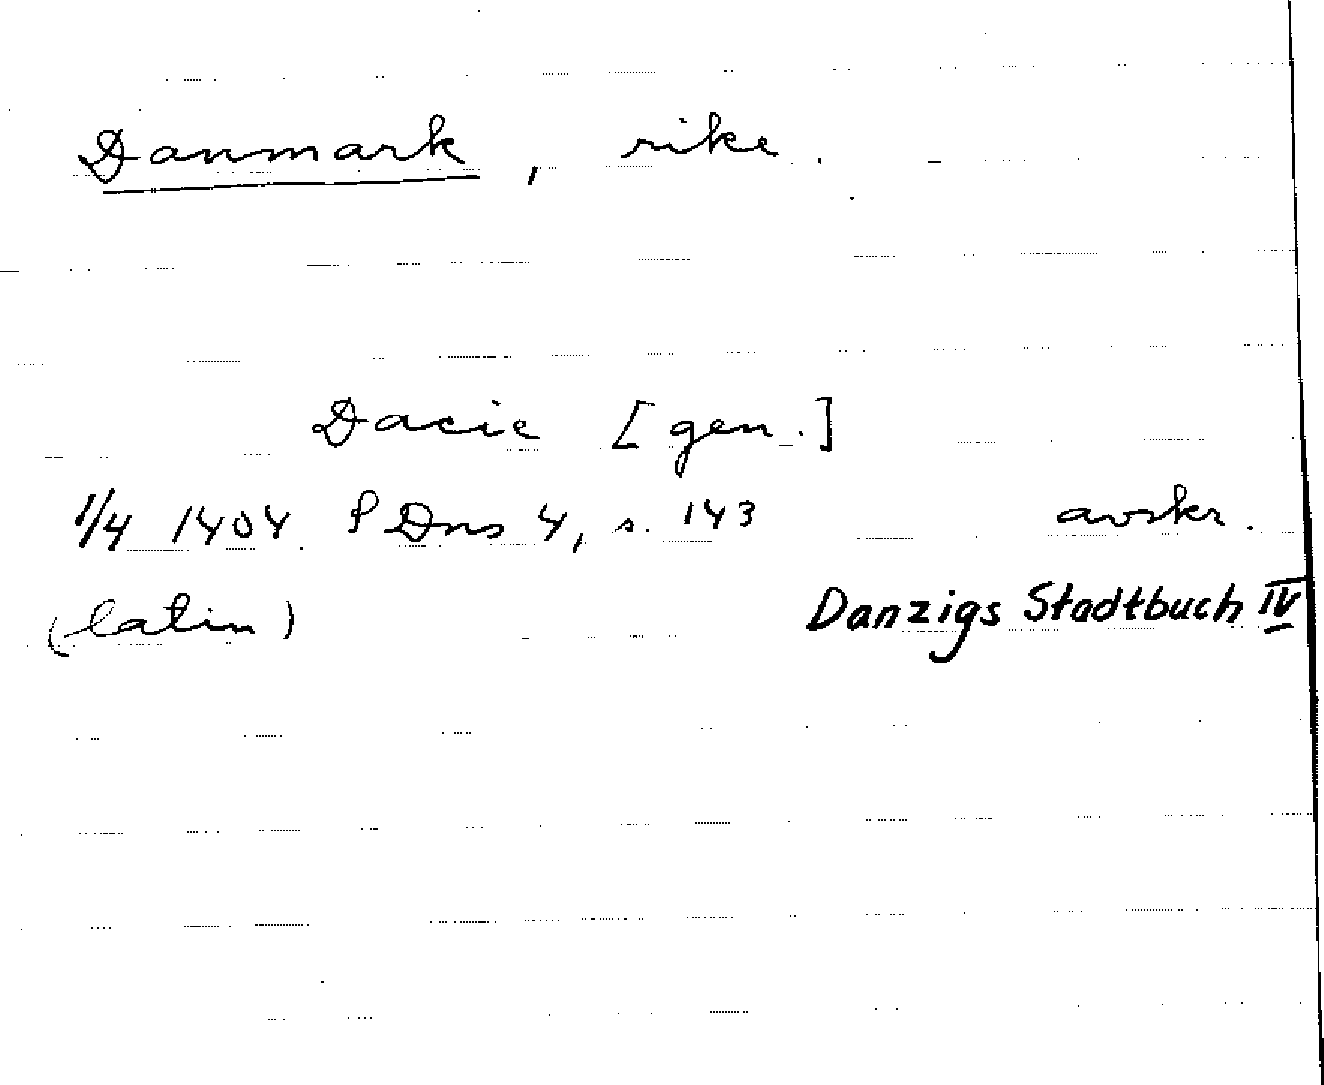 Danmark, rike.
Dacie [gen.]
1/4 1404. P Dns 4, s. 143 avskr.
(latin) Danzigs Stadtbuch IV